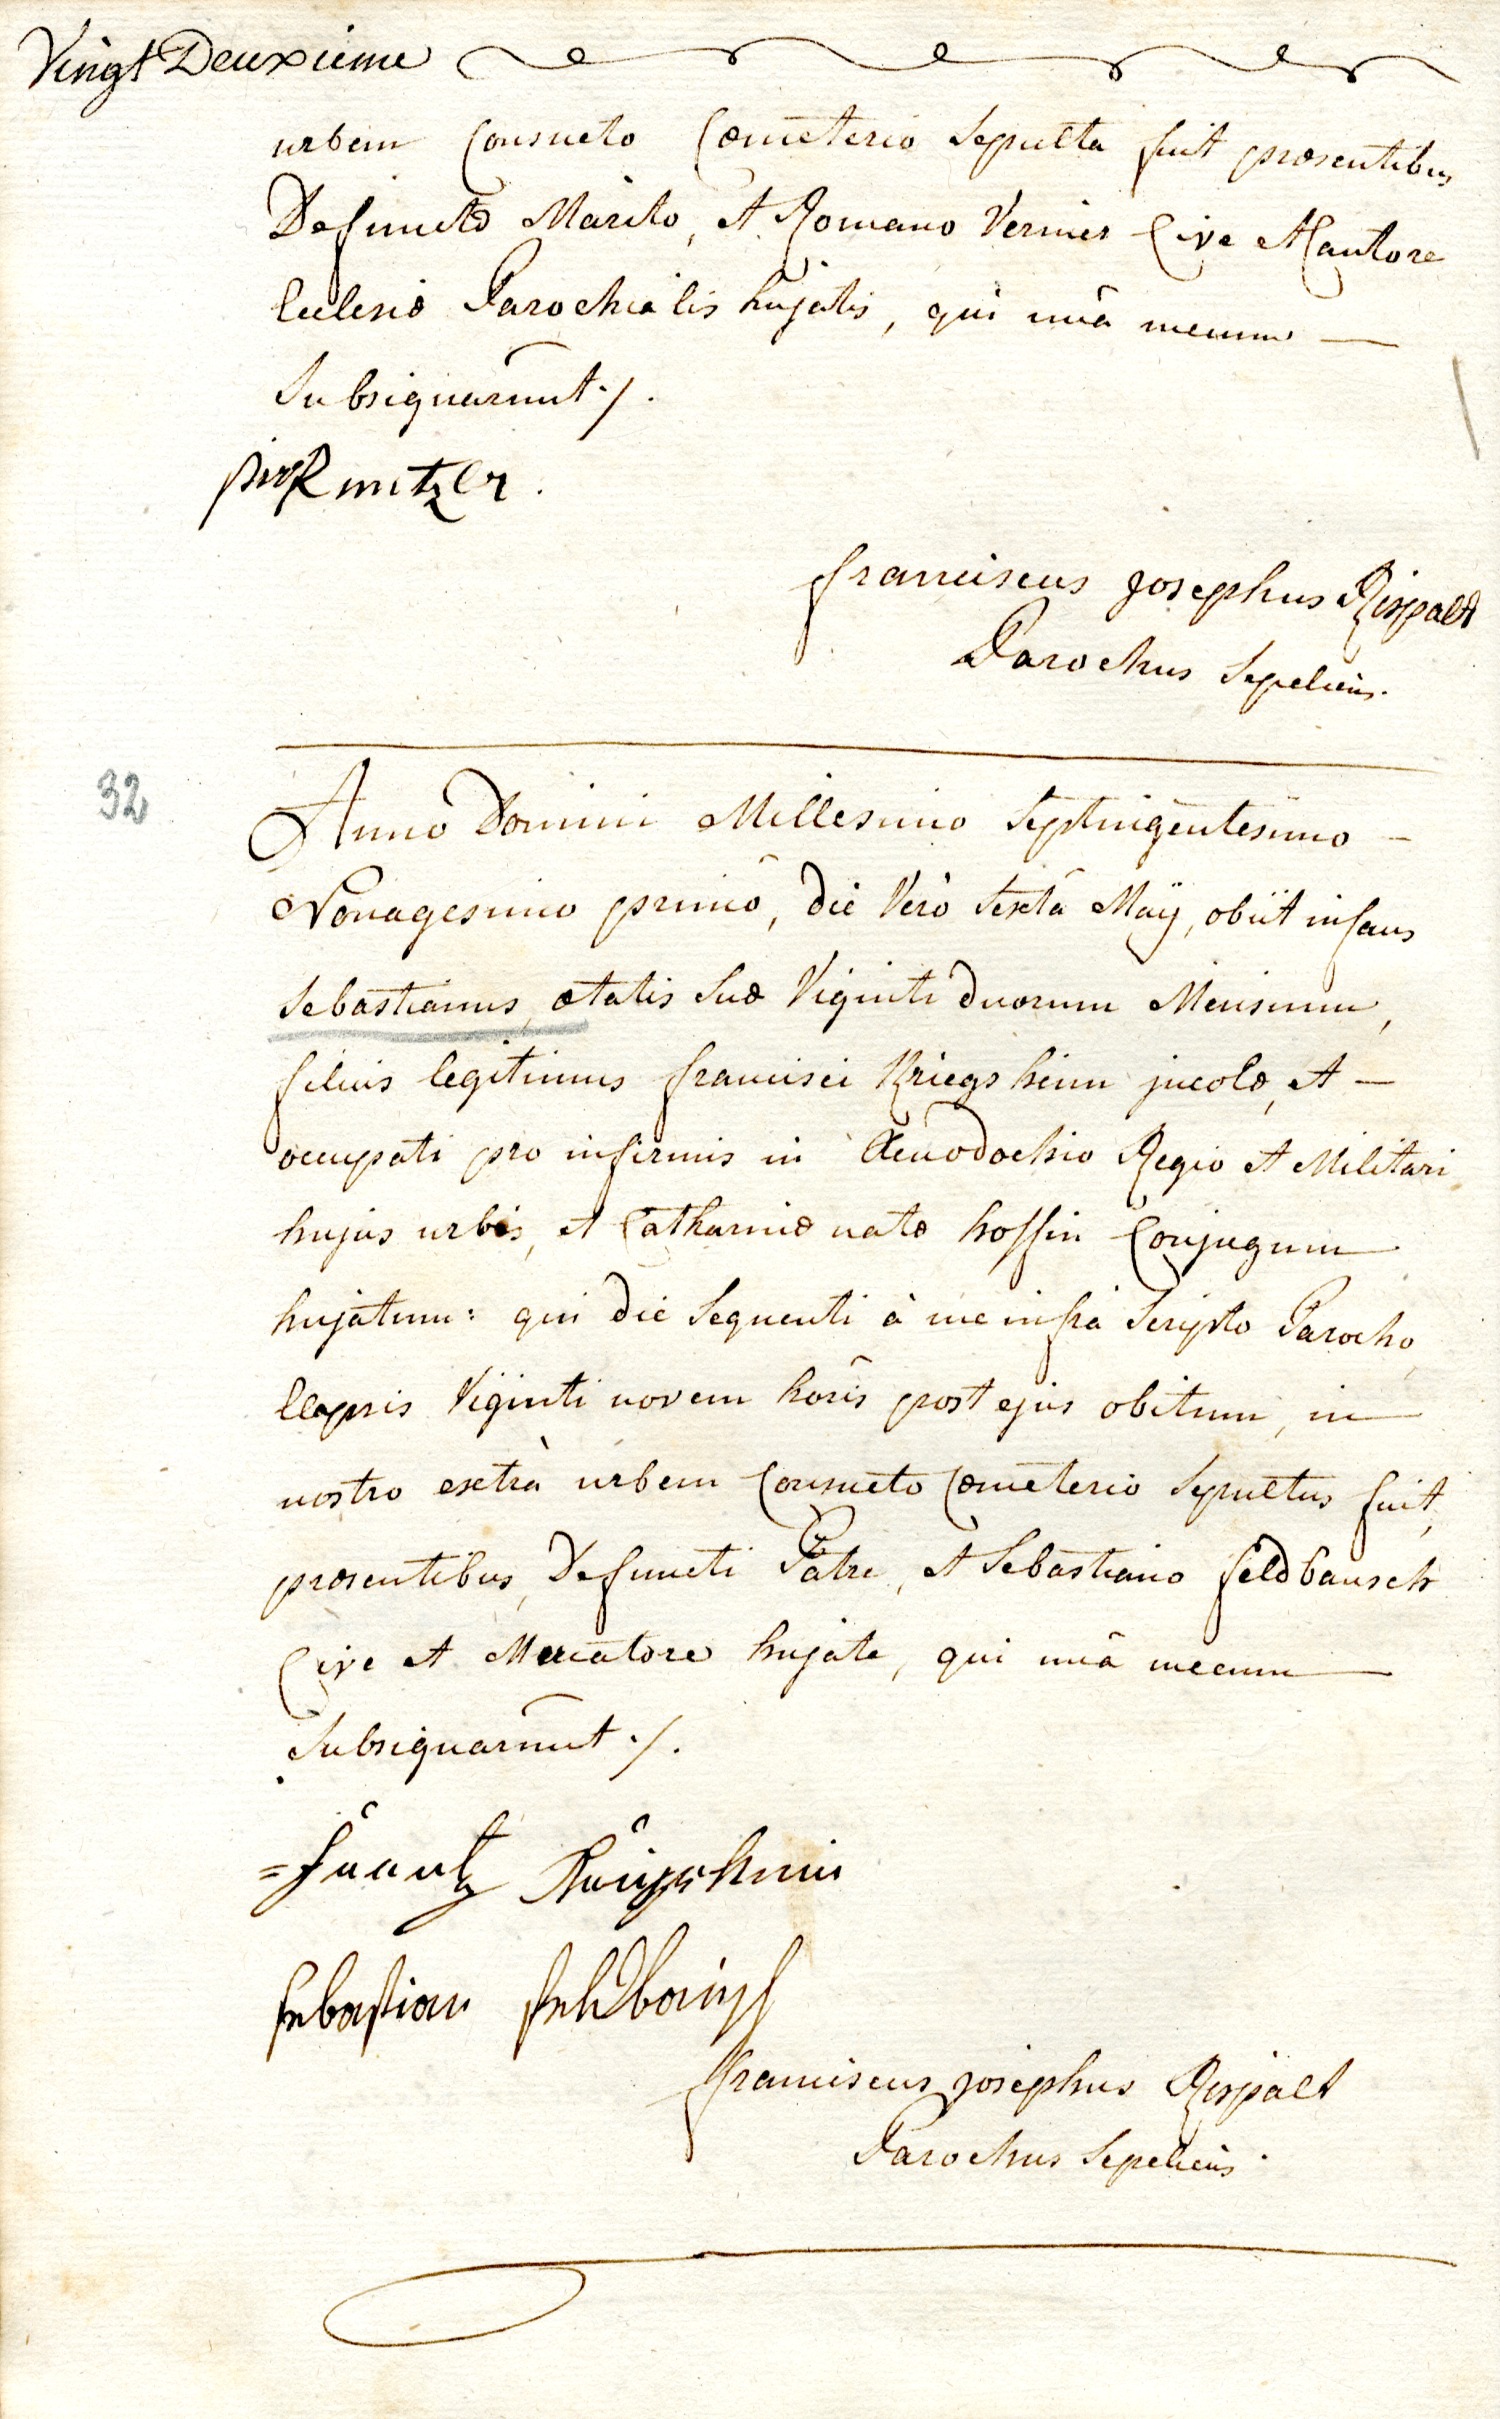 Vingt Deuxieme
urbem Consueto Cœmeterio Sepulta fuit præsentibus
Defunctæ Marito, et Romano Vernier Cive et Cantore
Ecclesiæ Parochialis hujatis, qui unâ mecum —
Subsignarunt ·/.
Kintzler.
franciscus josephus Rispalt
Parochus Sepeliens.
32
Anno Domini Millesimo Septingentesimo —
Nonagesimo primo, die Verò Sexta Maÿ, obiit infans
Sebastianus, ætatis Suæ Viginti duorum Mensium,
filius legitimus francisci Kriegsheim jncolæ, et —
occupati pro infirmis in Xenodochio Regio et Militari
hujus urbis, et Catharinæ natæ hoffin Conjugum
hujatum: qui die Sequenti à me infra Scripto Parocho
Elapsis Viginti novem horis post ejus obitum, in
nostro extrà urbem Consueto Cœmeterio Sepultus fuit,
præsentibus, Defuncti Patre, et Sebastiano feldbausch
Cive et Mercatore hujate, qui unâ mecum
Subsignarunt ·/.
= frantz Krigsheim
sebastian feldbausch
franciscus josephus Rispalt
Parochus Sepeliens.